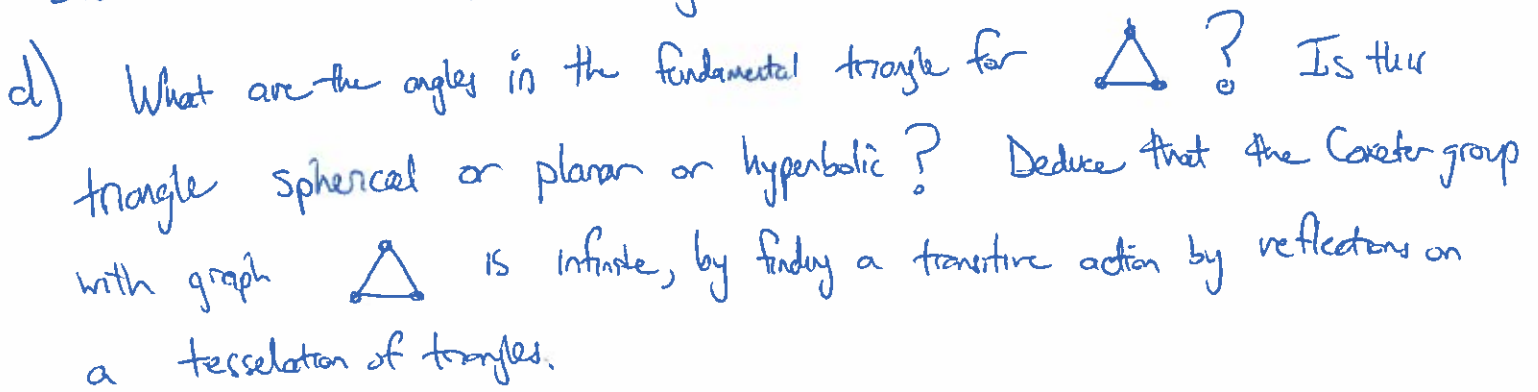 d) What are the angles in the fundamental triangle for ? Is this
triangle spherical or planar or hyperbolic? Deduce that the Coxeter group
with graph is infinite, by finding a transitive action by reflections on
a tesselation of triangles.